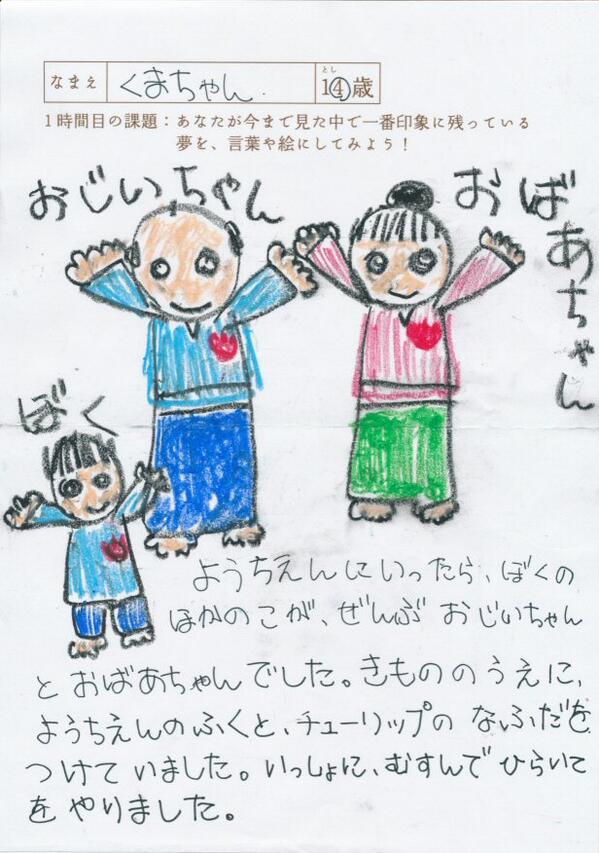 なまえ くまちゃん. とし 14歳
1時間目の課題：あなたが今まで見た中で一番印象に残っている
夢を、言葉や絵にしてみよう！
おじいちゃん
おばあちゃん
ぼく
ようちえんにいったら、ぼくの
ほかのこが、ぜんぶ おじいちゃん
と おばあちゃんでした。きもののうえに、
ようちえんのふくと、チューリップの なふだを
つけて いました。いっしょに、むすんで ひらいて
を やりました。